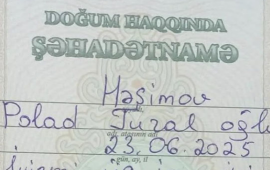 DOĞUM HAQQINDA
ŞƏHADƏTNAMƏ
Həşimov
Polad Tural oğlu
adı, atasının adı
23.06.2025
gün, ay, il